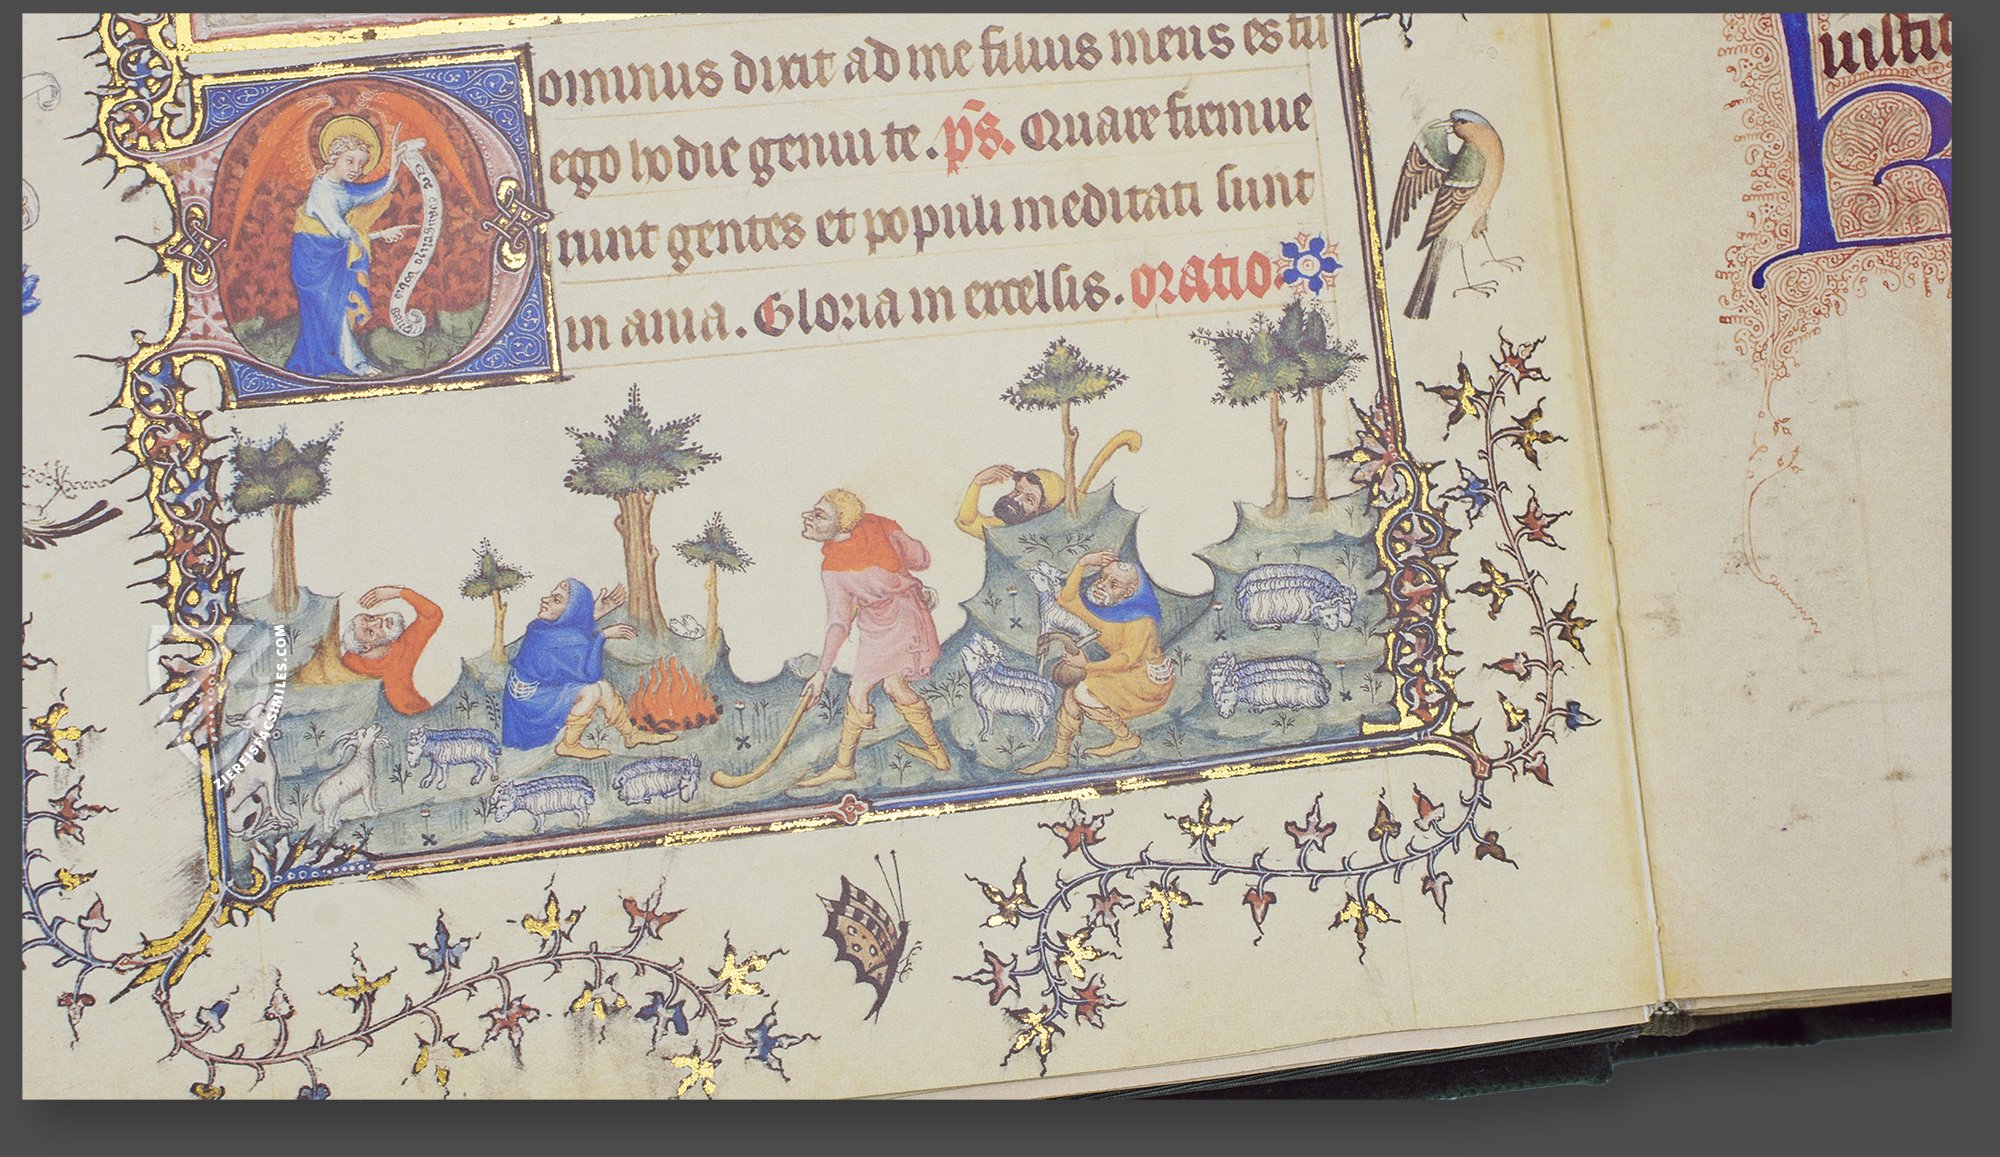 ominus dixit ad me filius meus es tu
ego hodie genui te. ps. Quare fremue
runt gentes et populi meditati sunt
in ania. Gloria in excelsis. oratio
ZIEREIS FACSIMILES.COM